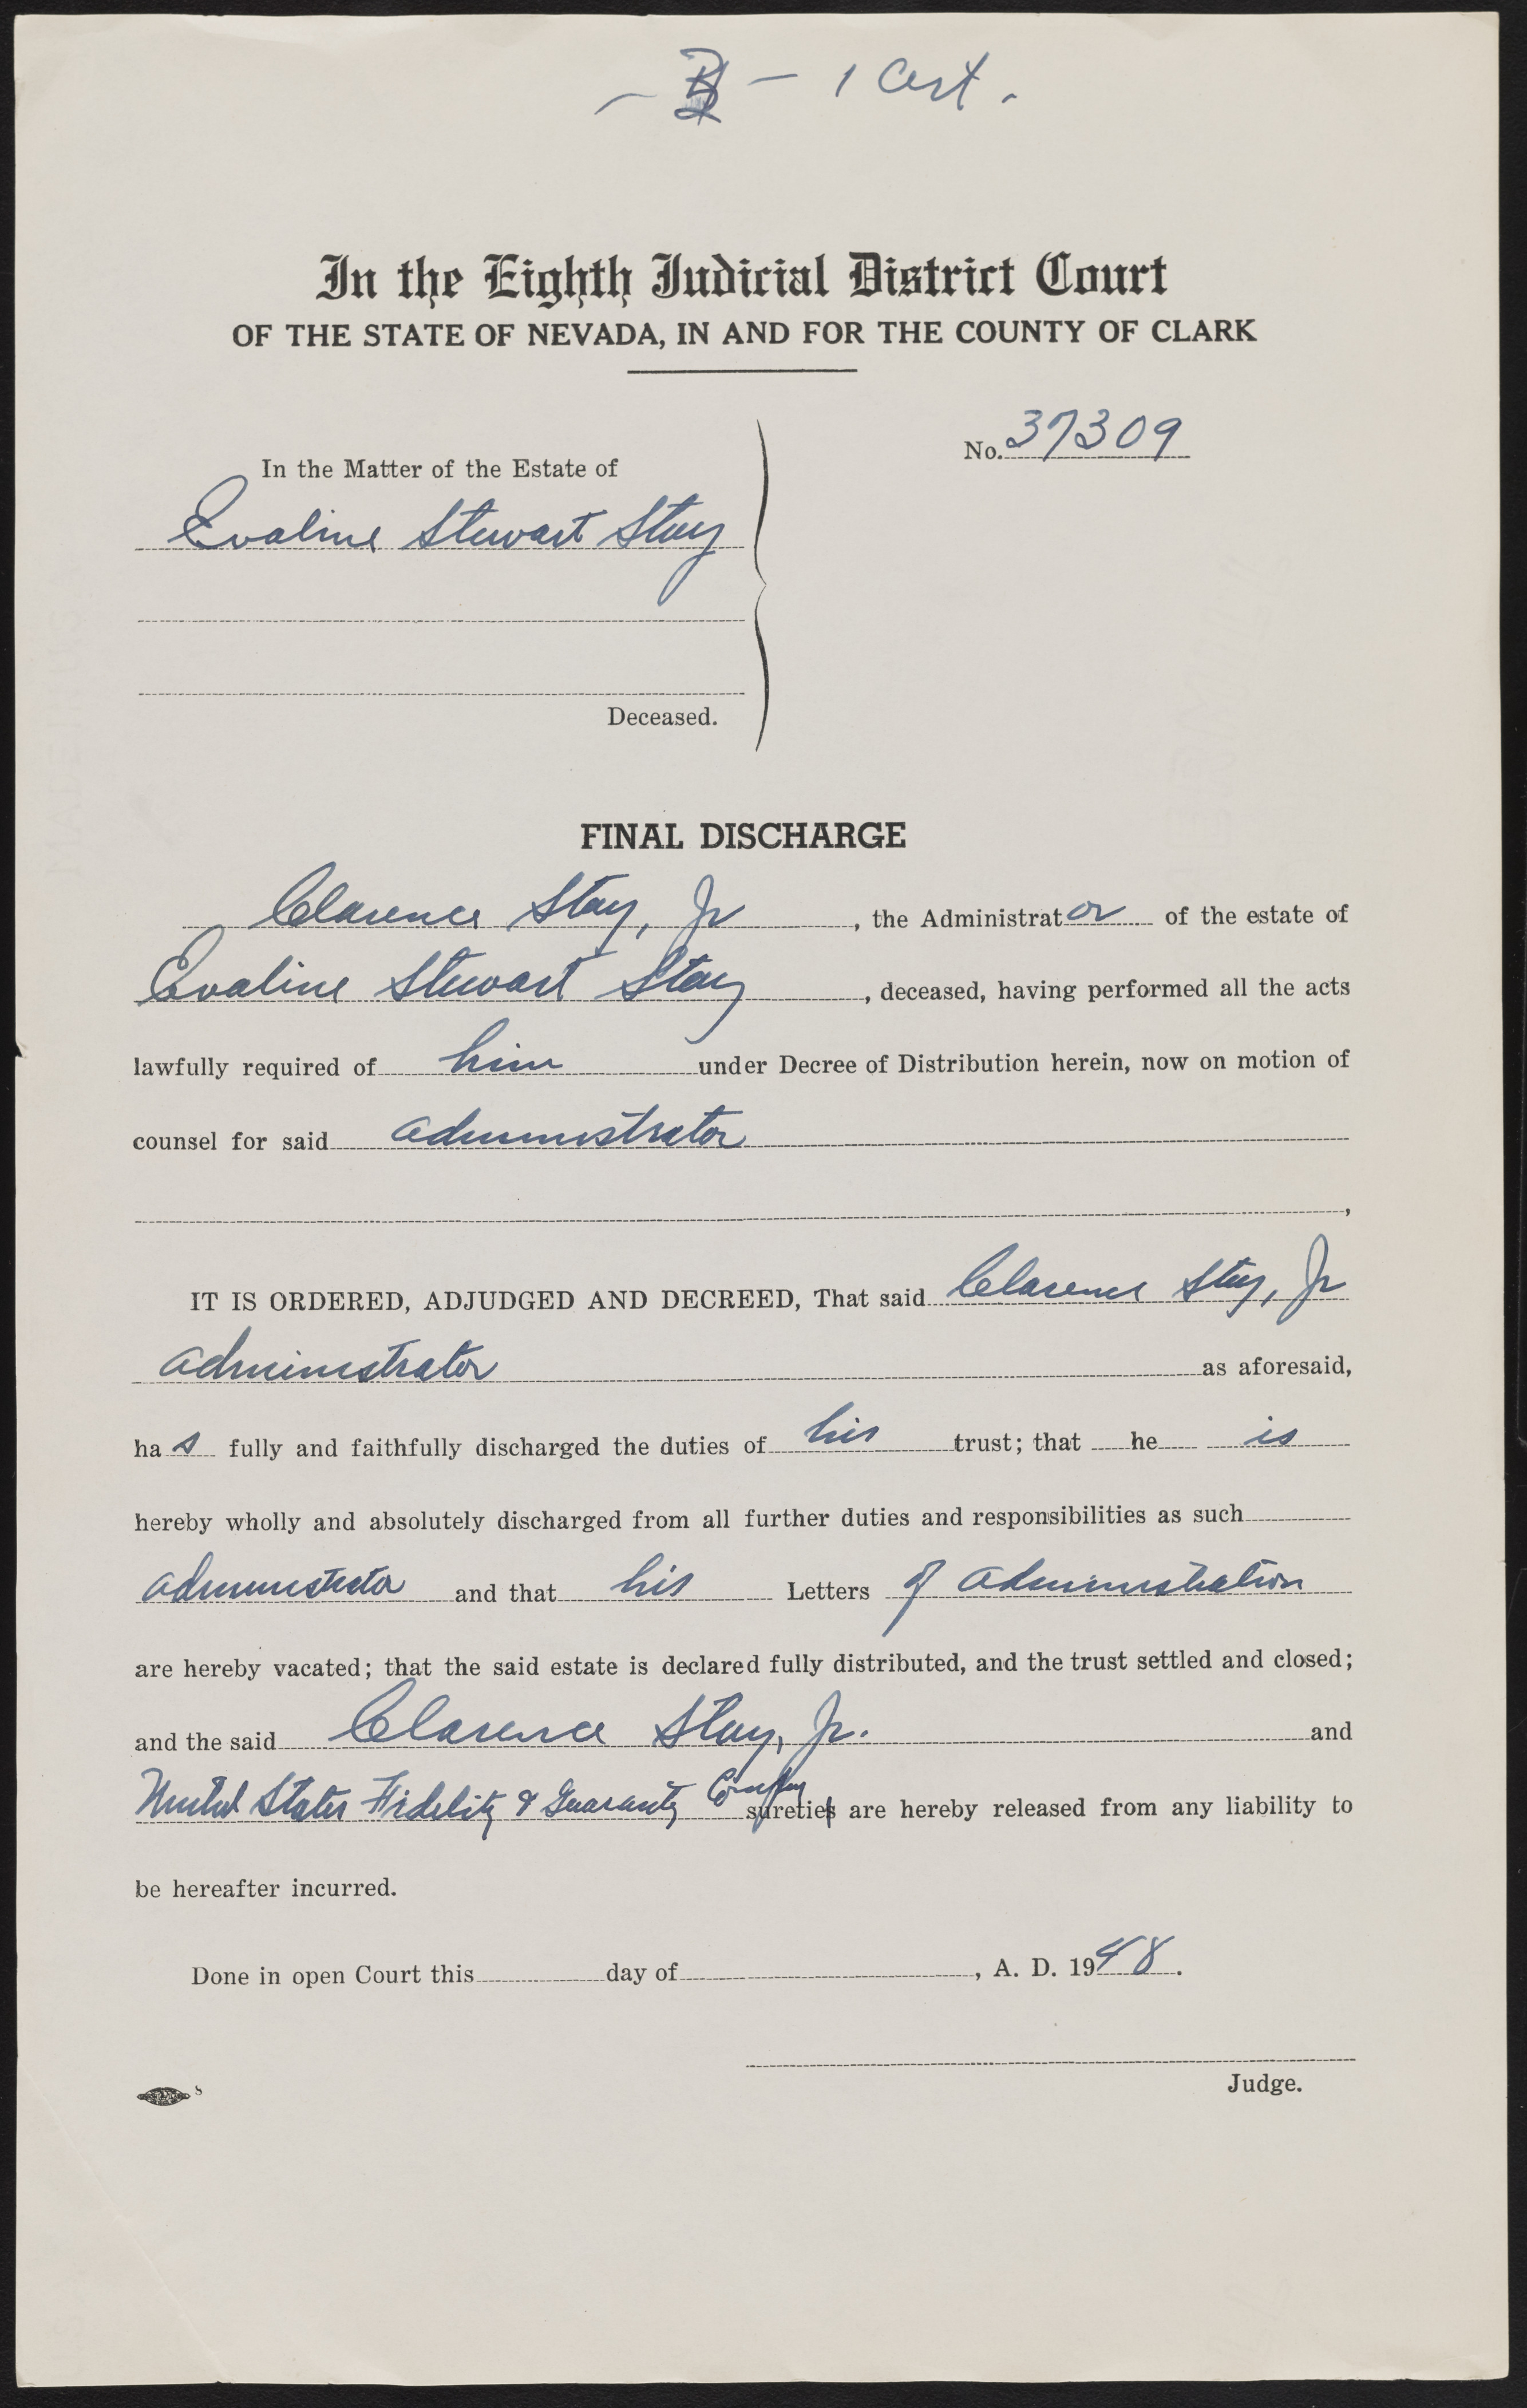 1 Cert.
In the Eighth Judicial District Court
OF THE STATE OF NEVADA, IN AND FOR THE COUNTY OF CLARK
No. 37309
In the Matter of the Estate of
Evaline Stewart Stay
Deceased.
FINAL DISCHARGE
Clarence Stay, Jr , the Administrator of the estate of
Evaline Stewart Stay , deceased, having performed all the acts
lawfully required of him under Decree of Distribution herein, now on motion of
counsel for said administrator
,
IT IS ORDERED, ADJUDGED AND DECREED, That said Clarence Stay, Jr
administrator as aforesaid,
has fully and faithfully discharged the duties of his trust; that he is
hereby wholly and absolutely discharged from all further duties and responsibilities as such
administrator and that his Letters of administration
are hereby vacated; that the said estate is declared fully distributed, and the trust settled and closed;
and the said Clarence Stay, Jr. and
United States Fidelity & Guaranty Company sureties are hereby released from any liability to
be hereafter incurred.
Done in open Court this day of , A. D. 1948.
Judge.
8